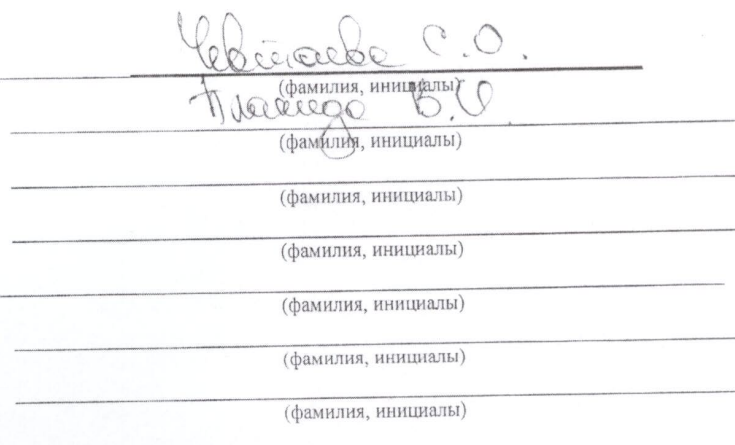 Чевтаева С.О.
(фамилия, инициалы)
В.И.
(фамилия, инициалы)
(фамилия, инициалы)
(фамилия, инициалы)
(фамилия, инициалы)
(фамилия, инициалы)
(фамилия, инициалы)